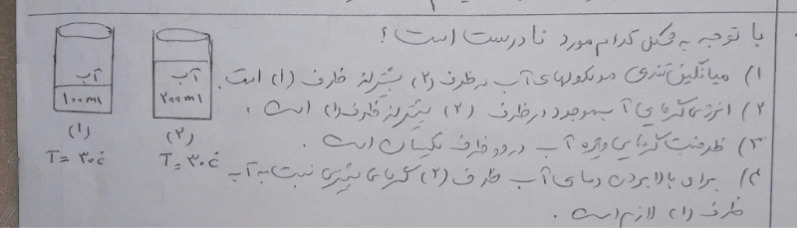 با توجه به شکل کدام مورد نادرست است؟
۱) میانگین تندی مولکولهای آب در ظرف (۲) بیشتر از ظرف (۱) است.
۲) انرژی گرمایی آب موجود در ظرف (۲) بیشتر از ظرف (۱) است.
۳) ظرفیت گرمایی ویژه آب در دو ظرف یکسان است.
۴) برای بالا بردن دمای آب ظرف (۲) گرمای بیشتری نسبت به آب
ظرف (۱) لازم است.
آب
۱۰۰ml
(۱)
T = ۳۰ċ
آب
۲۰۰ml
(۲)
T = ۳۰ċ